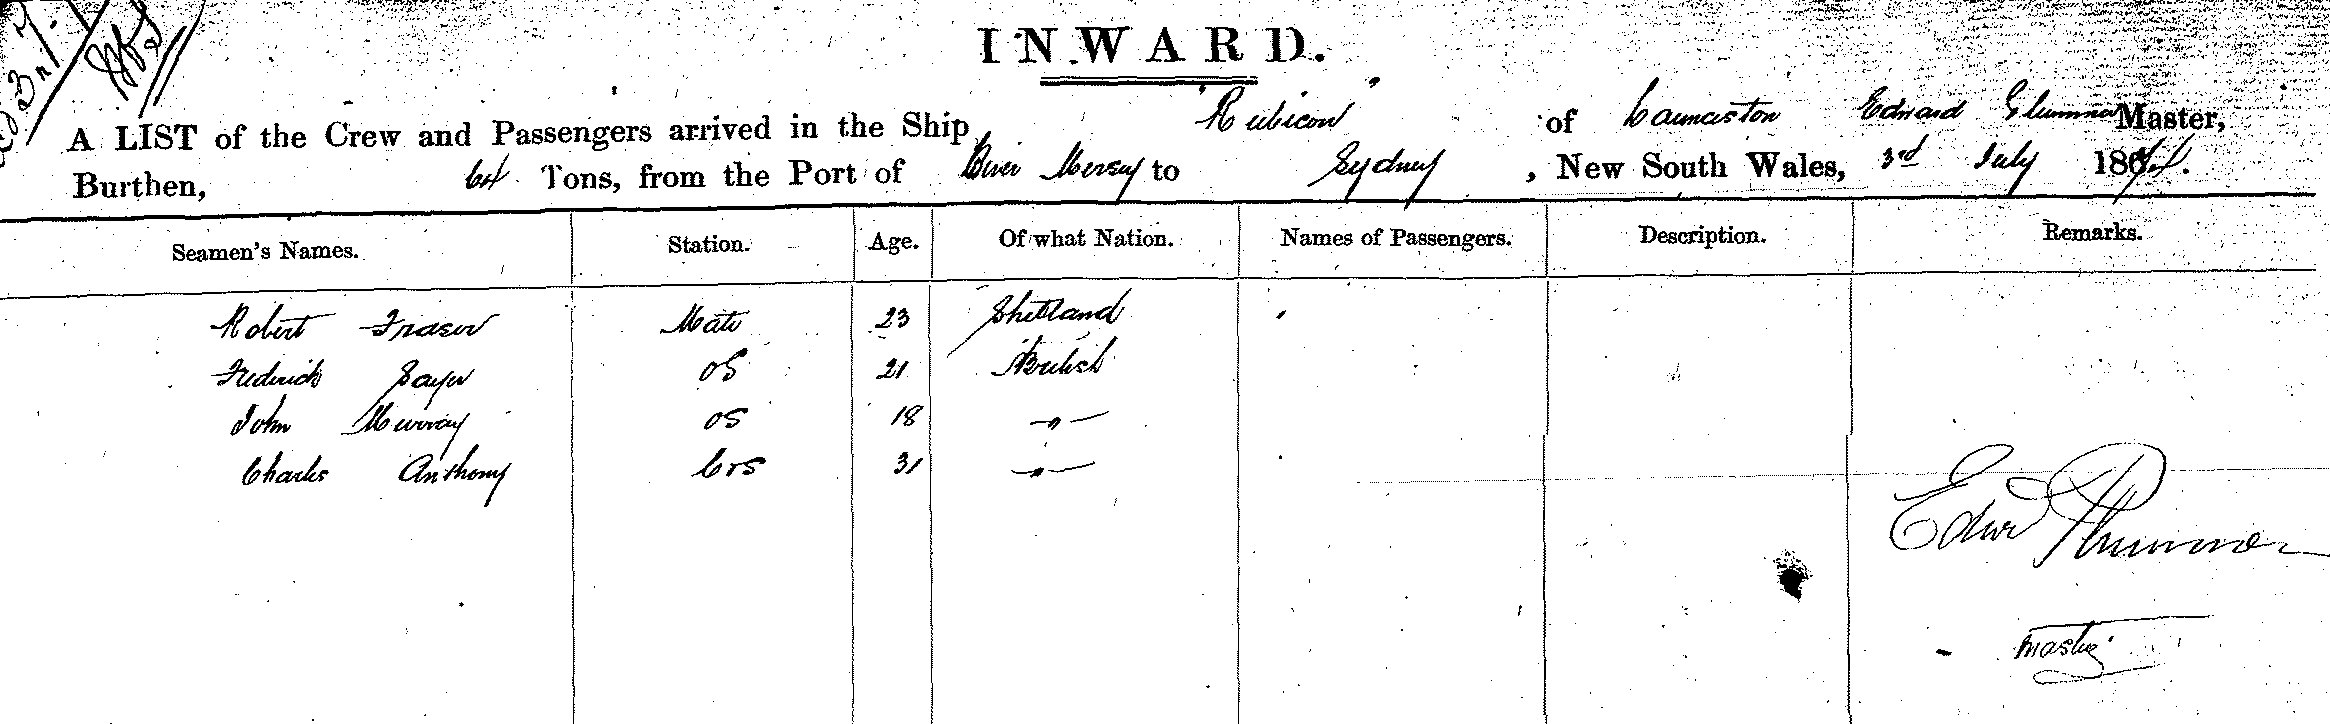 INWARD.
A LIST of the Crew and Passengers arrived in the Ship "Rubicon" of Launceston Edward Plummer Master,
Burthen, 64 Tons, from the Port of River Mersey to Sydney, New South Wales, 3rd July 187
Seamen's Names. Station. Age. Of what Nation. Names of Passengers. Description. Remarks.
Robert Fraser Mate 23 Shetland
Frederick Sayer OS 21 British
John Murray OS 18 "
Charles Anthony 31 "
Edwd Plummer
Master